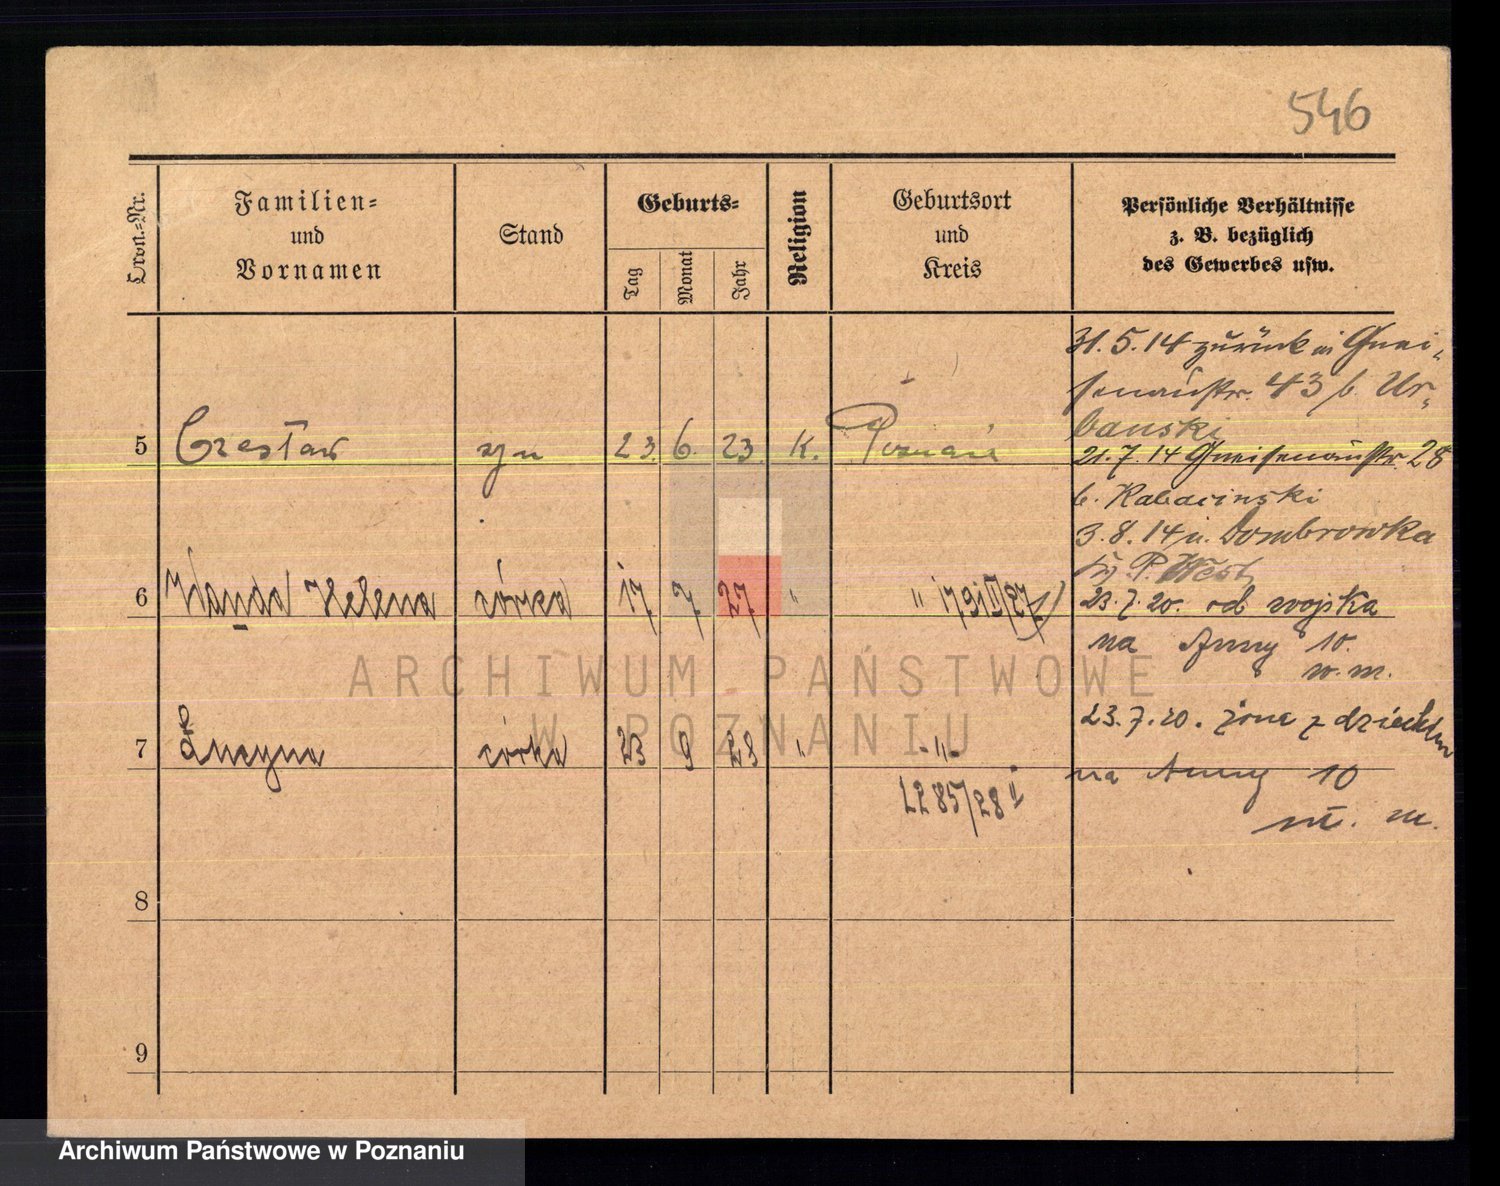 546
Ordn.-Nr.
Familien-
und
Vornamen
Stand
Geburts-
Tag
Monat
Jahr
Religion
Geburtsort
und
Kreis
Persönliche Verhältnisse
z. B. bezüglich
des Gewerbes usw.
31.5.14 zurück in Gnei-
senaustr. 43 b. Ur-
banski
5 Czesław syn 23. 6. 23 K. Poznań
21.7.14 Gneisenaustr. 28
b. Kabacinski
3.8.14 n. Dombrowka
Kr. P. West
6 Wanda Helena córka 17 7 27 " "
23.7.20. od wojska
na Anny 10.
w. m.
23.7.20. żona z dzieckiem
7 córka 23 9 28 " -"-
na Anny 10
w. m.
2285/28 II
8
9
ARCHIWUM PAŃSTWOWE
W POZNANIU
Archiwum Państwowe w Poznaniu